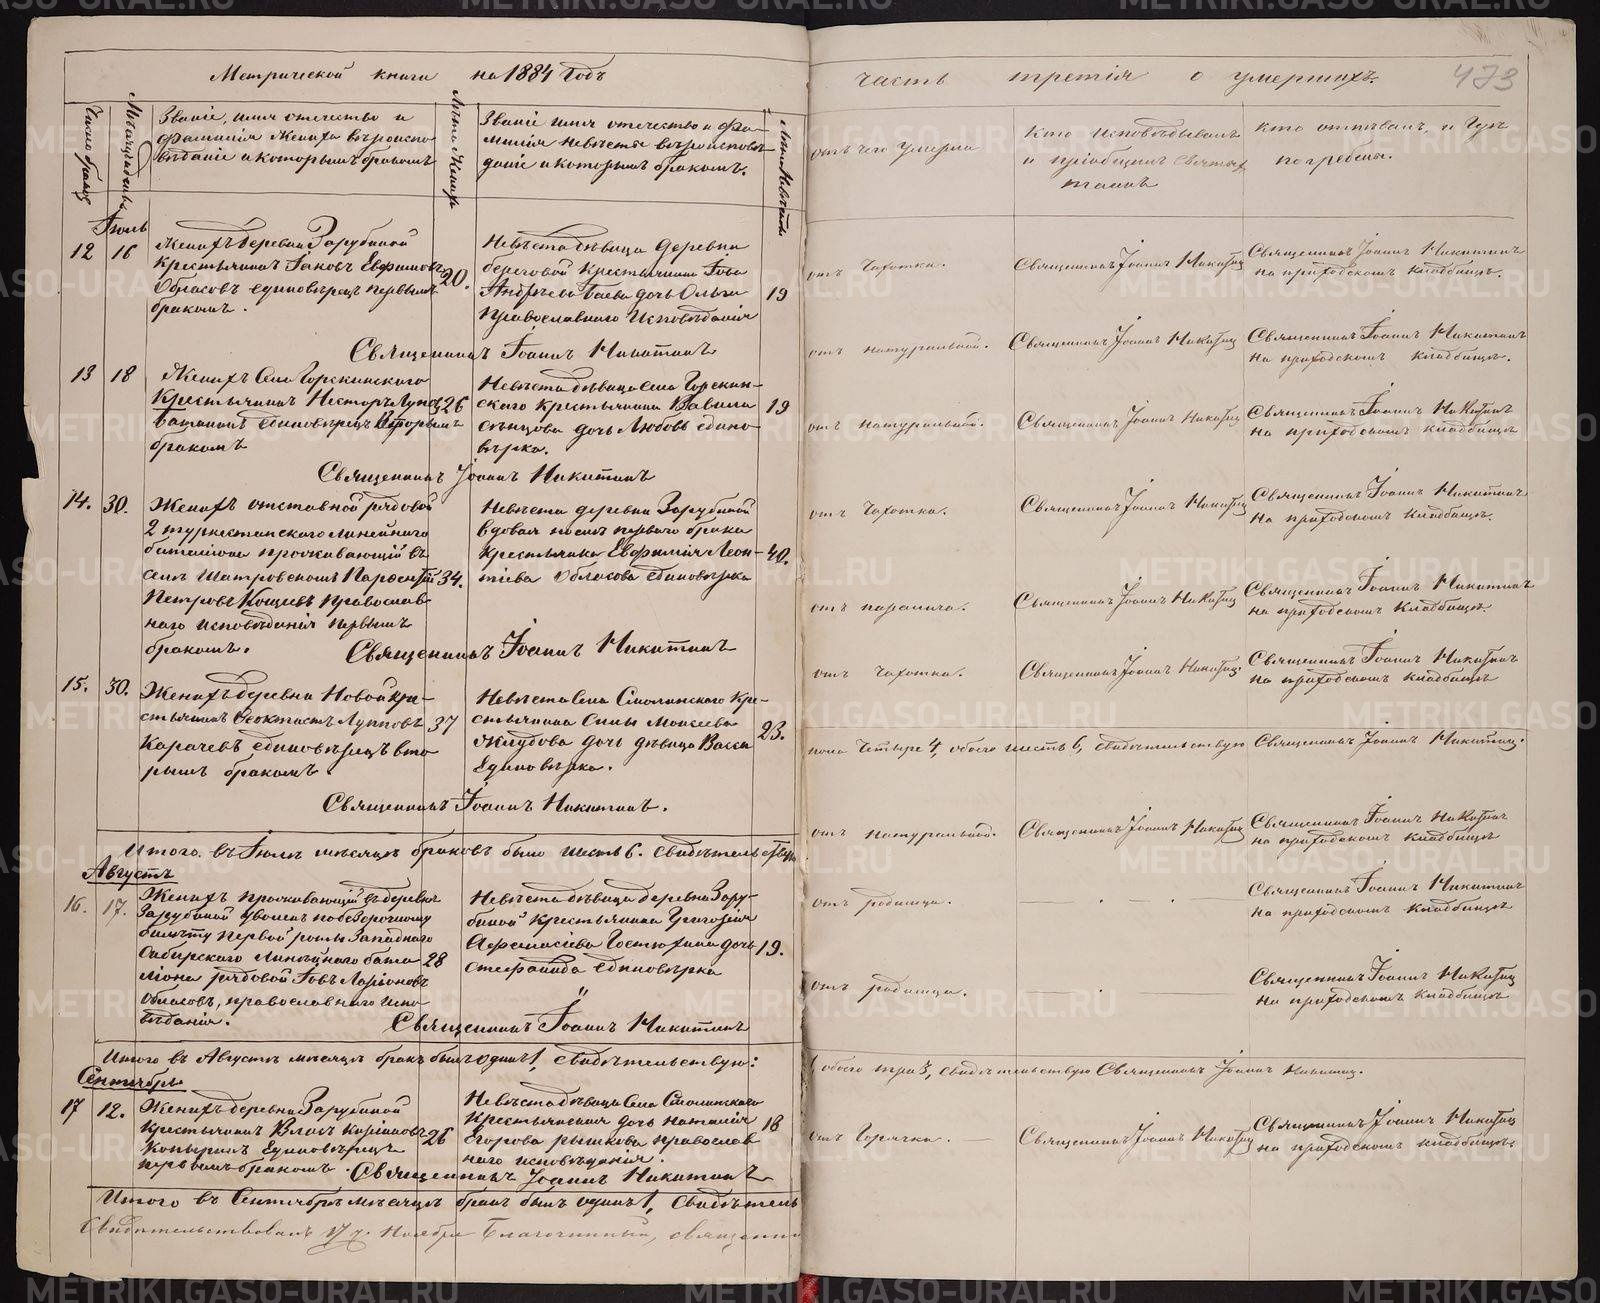 Метрической книги на 1884 годъ
Число браковъ
Мѣсяцъ и день
Званіе, имя отчество и
фамилія жениха вѣроиспо-
вѣданіе и которымъ бракомъ
Лѣта жениха
Званіе имя отчество и фа-
милія невѣсты вѣроисповѣ-
даніе и которымъ бракомъ.
Лѣта невѣсты
Іюль
12 16
Женихъ деревни Зарубиной
крестьянинъ Іаковъ Евфимовъ
Обласовъ единовѣрецъ первымъ
бракомъ.
20.
Невѣста дѣвица деревни
береговой крестьянина Іова
Андреева Баева дочь Ольга
Православнаго Исповѣданія
19
Священникъ Іоаннъ Никитинъ
13 18
Женихъ Села
Крестьянинъ Несторъ Луповъ
единовѣрецъ Вторымъ
бракомъ
26
Невѣста дѣвица Села
крестьянина Вавила
дочь Любовь едино-
вѣрка.
19
Священникъ Іоаннъ Никитинъ
14. 30.
Женихъ отставной рядовой
2 туркестанскаго линейнаго
баталіона проживающій въ
селѣ Шатровскомъ
Петровъ Кощеевъ православ-
наго исповѣданія первымъ
бракомъ.
34.
Невѣста деревни Зарубиной
вдовая послѣ перваго брака
крестьянка Евфимія Леон-
тіева Обласова единовѣрка
40.
Священникъ Іоаннъ Никитинъ
15. 30.
Женихъ деревни Новой кре-
стьянинъ Феоктистъ Лупповъ
Карачевъ единовѣрецъ вто-
рымъ бракомъ.
37
Невѣста Села Смолинскаго Кре-
стьянина Силы Моисеева
дочь дѣвица Васса
Единовѣрка.
23.
Священникъ Іоаннъ Никитинъ.
Итого въ Іюлѣ мѣсяцѣ браковъ было шесть 6. Свидѣтельствую
Августъ
16. 17.
Женихъ проживающій въ деревнѣ
Зарубиной уволенъ по безсрочному
билету первой роты Западнаго
Сибирскаго Линейнаго бата-
ліона рядовой Іовъ Ларіоновъ
Обласовъ, православнаго испо-
вѣданія.
28
Невѣста дѣвица деревни Зару-
биной крестьянина Григорія
Афанасіева Гостюхина дочь
Стефанида единовѣрка
19.
Священникъ Іоаннъ Никитинъ
Итого въ Августѣ мѣсяцѣ бракъ былъ одинъ 1, свидѣтельствую:
Сентябрь
17 12.
Женихъ деревни Зарубиной
крестьянинъ Власъ
Копыринъ Единовѣрецъ
первымъ бракомъ.
26
Невѣста дѣвица Села Смолинскаго
Крестьянина дочь Наталія
Егорова православ-
наго исповѣданія.
18
Священникъ Іоаннъ Никитинъ
Итого въ Сентябрѣ мѣсяцѣ бракъ былъ одинъ 1, Свидѣтель
Свидѣтельствовалъ 17 д. Ноября Благочинный, священни
часть третія о умершихъ.
473
отъ чего умерли
кто исповѣдывалъ
и пріобщилъ святыхъ
таинъ
кто отпѣвалъ, и гдѣ
погребены.
отъ Чахотки. Священникъ Іоаннъ Никитинъ
Священникъ Іоаннъ Никитинъ
на приходскомъ кладбищѣ.
отъ натуральной. Священникъ Іоаннъ Никитинъ
Священникъ Іоаннъ Никитинъ
на приходскомъ кладбищѣ.
отъ натуральной. Священникъ Іоаннъ Никитинъ
Священникъ Іоаннъ Никитинъ
на приходскомъ кладбищѣ
отъ Чахотки. Священникъ Іоаннъ Никитинъ
Священникъ Іоаннъ Никитинъ
на приходскомъ кладбищѣ.
отъ паралича. Священникъ Іоаннъ Никитинъ
Священникъ Іоаннъ Никитинъ
на приходскомъ кладбищѣ.
отъ Чахотки. Священникъ Іоаннъ Никитинъ.
Священникъ Іоаннъ Никитинъ
на приходскомъ кладбищѣ
пола Четыре 4, обоего шесть 6, свидѣтельствую Священникъ Іоаннъ Никитинъ.
отъ натуральной. Священникъ Іоаннъ Никитинъ
Священникъ Іоаннъ Никитинъ
на приходскомъ кладбищѣ
отъ родимца.
Священникъ Іоаннъ Никитинъ
на приходскомъ кладбищѣ
отъ родимца.
Священникъ Іоаннъ Никитинъ
на приходскомъ кладбищѣ
обоего три 3, свидѣтельствую Священникъ Іоаннъ Никитинъ.
отъ Горячки. Священникъ Іоаннъ Никитинъ
Священникъ Іоаннъ Никитинъ
на приходскомъ кладбищѣ.
METRIKI.GASO-URAL.RU